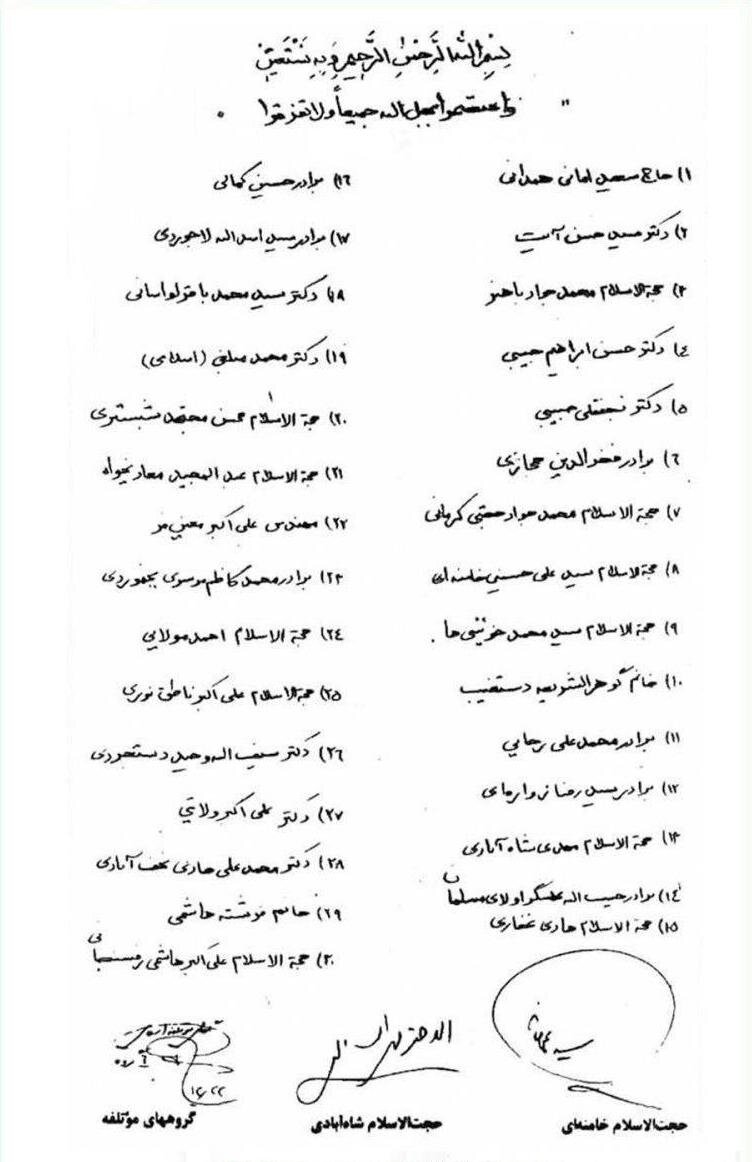 بِسْمِ اللهِ الرَّحْمنِ الرَّحِیمِ وَ بِهِ نَسْتَعین
" واعتصموا بحبل الله جمیعاً ولا تفرقوا .
۱) حاج سعید امانی همدانی
۲) دکتر سید حسن آیت
۳) حجة الاسلام محمد جواد باهنر
۴) دکتر حسن ابراهیم حبیبی
۵) دکتر نجفقلی حبیبی
۶) برادر فخرالدین حجازی
۷) حجة الاسلام محمد جواد حجتی کرمانی
۸) حجة الاسلام سید علی حسینی خامنه ای
۹) حجة الاسلام سید محمد خوئینی ها .
۱۰) خانم گوهرالشریعه دستغیب
۱۱) برادر محمد علی رجایی
۱۲) برادر سید رضا زواره ای
۱۳) حجة الاسلام مهدی شاه آبادی
۱۴) برادر حبیب اله عسگر اولادی مسلمان
۱۵) حجة الاسلام هادی غفاری
۱۶) برادر حسین کمالی
۱۷) برادر سید اسد اله لاجوردی
۱۸) دکتر سید محمد باقر لواسانی
۱۹) دکتر محمد (اسلامی)
۲۰) حجة الاسلام محسن مجتهد شبستری
۲۱) حجة الاسلام عبد المجید معادیخواه
۲۲) مهندس علی اکبر معین فر
۲۳) برادر محمد کاظم موسوی بجنوردی
۲۴) حجة الاسلام احمد مولایی
۲۵) حجة الاسلام علی اکبر ناطق نوری
۲۶) دکتر سیف اله وحید دستجردی
۲۷) دکتر علی اکبر ولایتی
۲۸) دکتر محمد علی هادی نجف آبادی
۲۹) خانم فرشته هاشمی
۳۰) حجة الاسلام علی اکبر هاشمی رفسنجانی
سید علی
الاحقر مهدی
۱۲/۲۲
حجت‌الاسلام خامنه‌ای
حجت‌الاسلام شاه‌آبادی
گروههای مؤتلفه